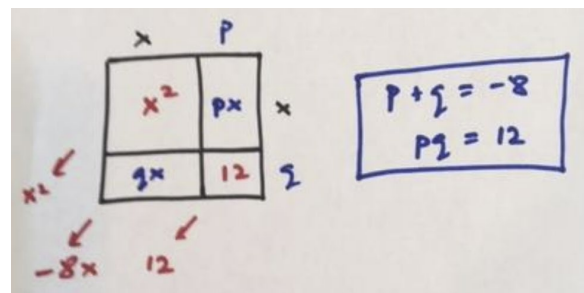 x p
x² px x
qx 12 q
x²
-8x 12
p + q = -8
pq = 12